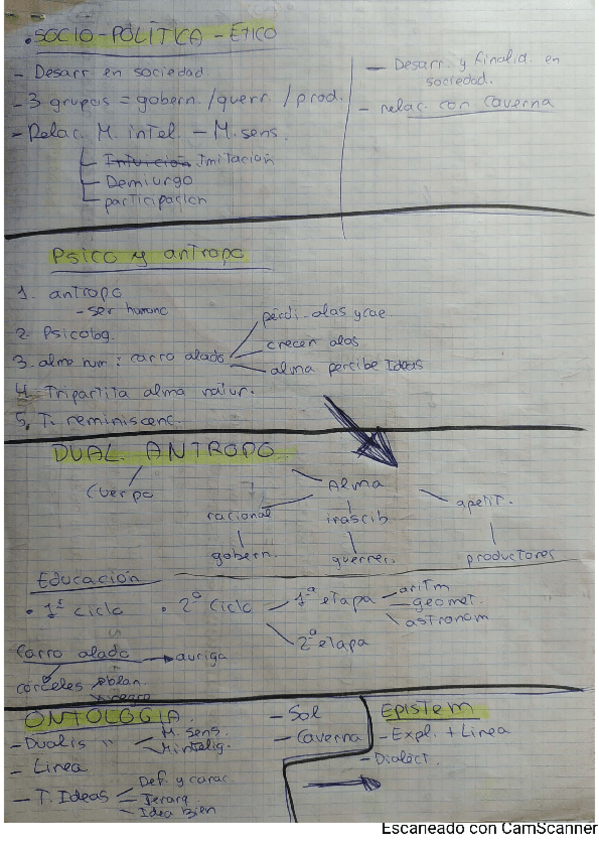 • SOCIO-POLÍTICA-ÉTICO
- Desarr en sociedad
- 3 grupos = gobern. /guerr. / prod.
- Relac. M. intel. - M. sens.
Intuición Imitación
Demiurgo
participación
- Desarr. y finalid. en
sociedad.
- relac. con Caverna
Psico y antropo
1. antropo
- ser humano
2. Psicolog.
3. alma hum: carro alado
perdi. alas y cae
crecen alas
alma percibe Ideas
4. Tripartita alma natur.
5. T. reminiscenc.
DUAL. ANTROPO.
cuerpo
Alma
racional
irascib
apetit.
gobern.
guerrer.
productores
Educación
• 1er ciclo
• 2º ciclo
1ª etapa
aritm
geomet.
astronom
2ª etapa
Carro alado → auriga
corceles
blan.
negro
ONTOLOGIA.
- Dualis
M. sens.
M. intelig.
- Linea
- T. Ideas
Def. y carac
Jerarq
Idea Bien
- Sol
- Caverna
Epistem
- Expl. + Linea
- Dialéct.
Escaneado con CamScanner